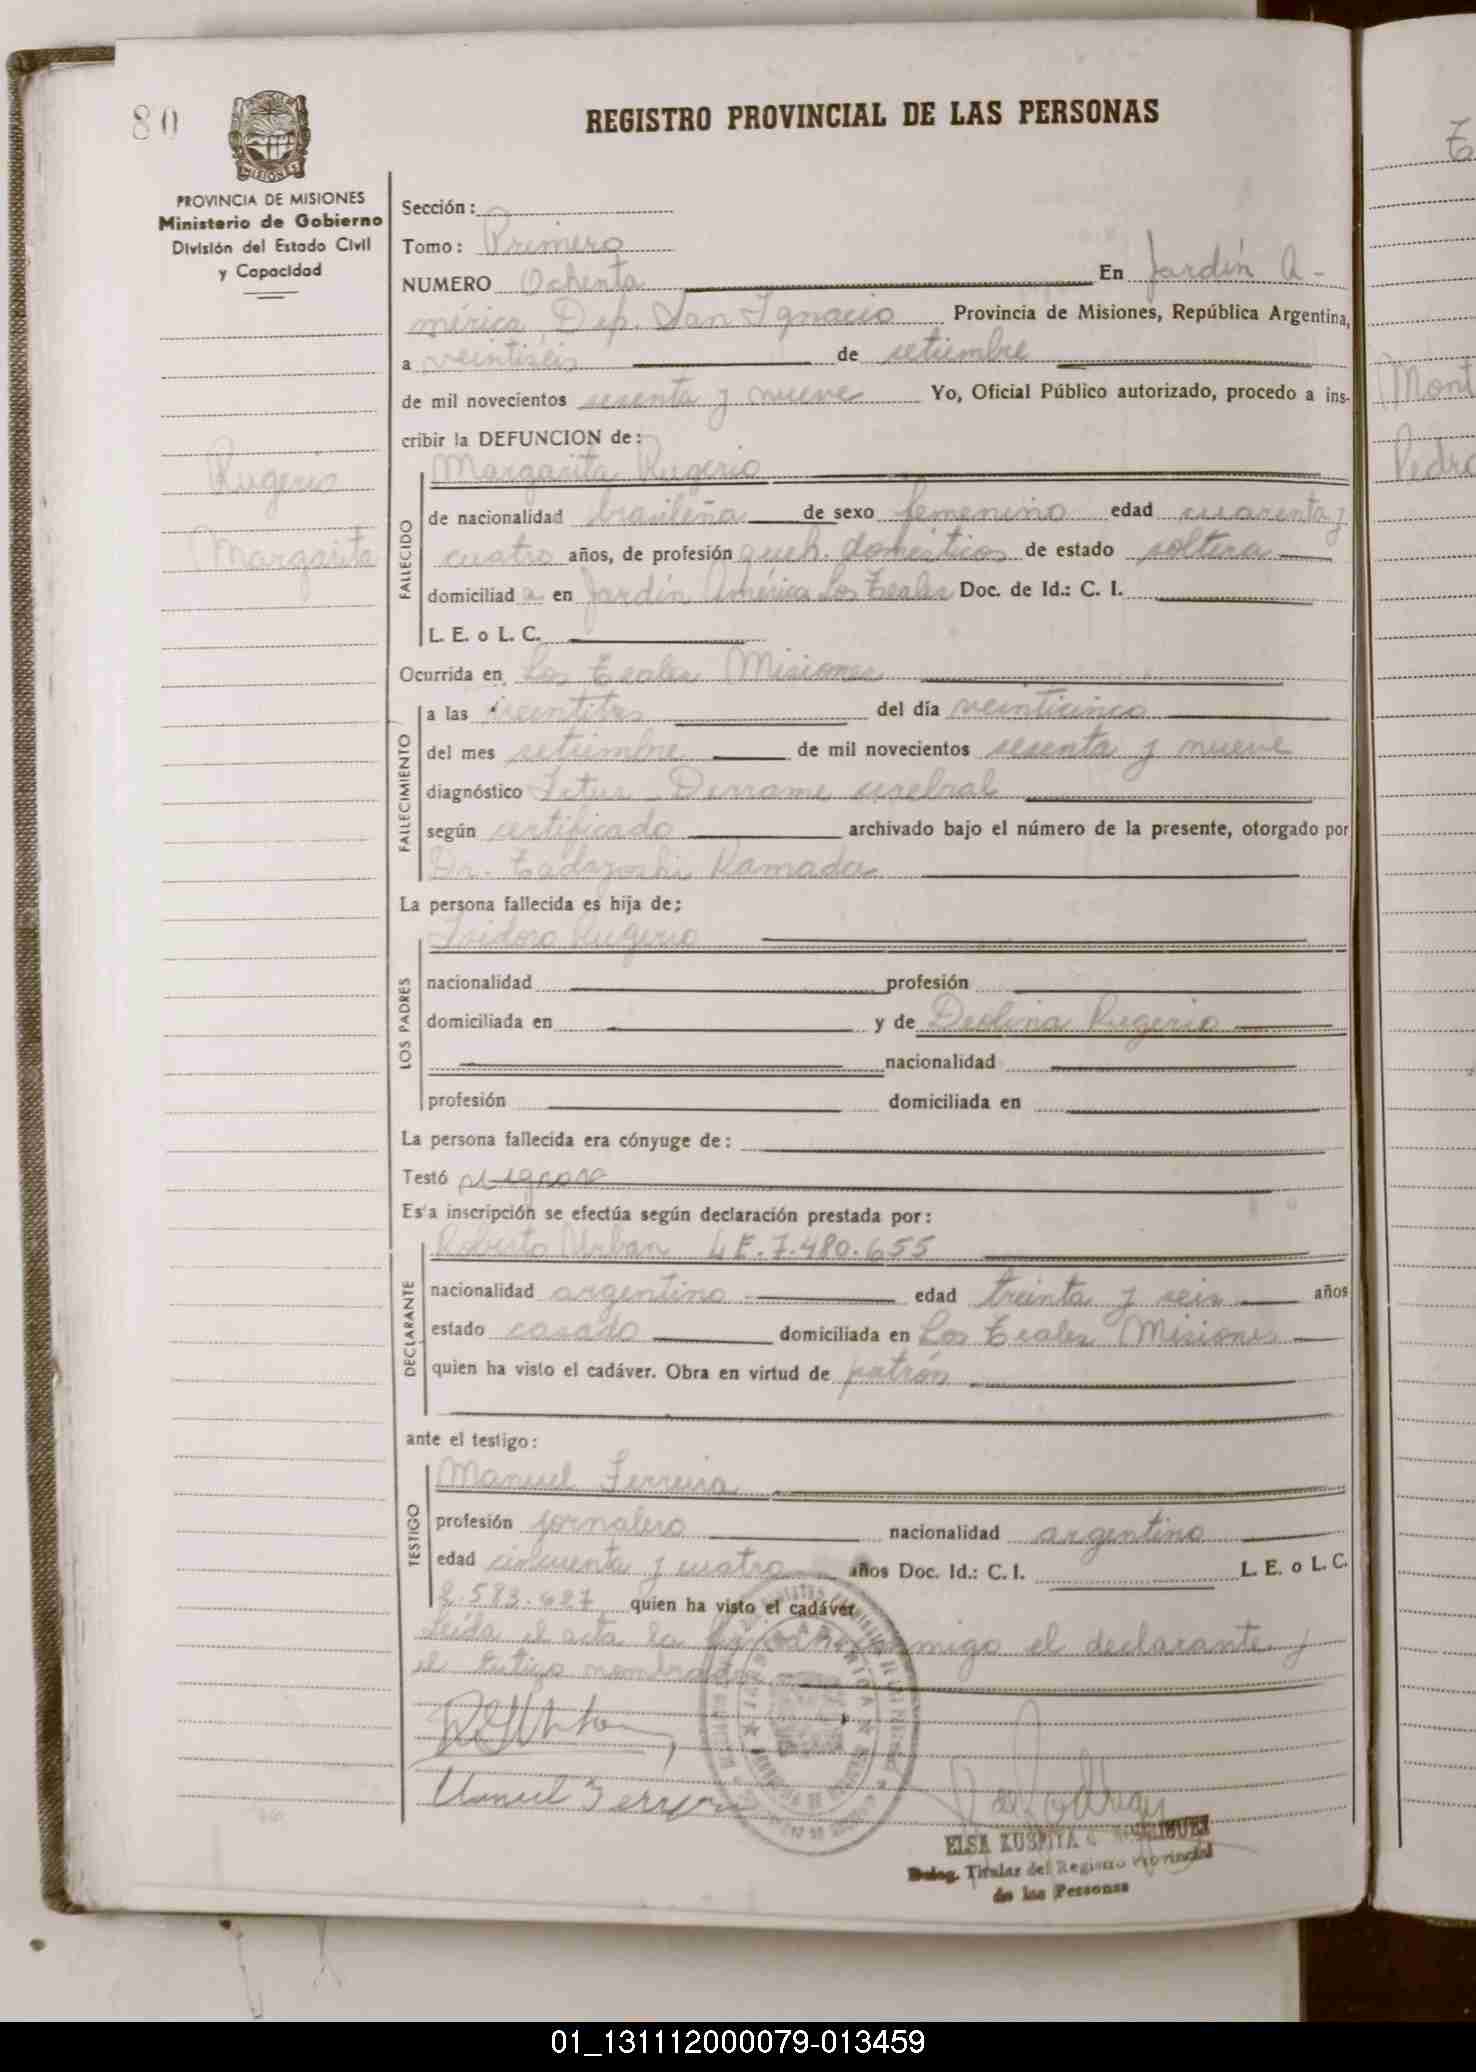 80
REGISTRO PROVINCIAL DE LAS PERSONAS
MISIONES
PROVINCIA DE MISIONES
Ministerio de Gobierno
División del Estado Civil
y Capacidad
Rugerio
Margarita
Sección:
Tomo: Primero
NUMERO Ochenta En Jardín A-
mérica Dep. San Ignacio Provincia de Misiones, República Argentina,
a veintiséis de setiembre
de mil novecientos sesenta y nueve Yo, Oficial Público autorizado, procedo a ins-
cribir la DEFUNCION de:
Margarita Rugerio
FALLECIDO
de nacionalidad brasileña de sexo femenino edad cuarenta y
cuatro años, de profesión queh. domésticos de estado soltera
domiciliad a en Jardín América Los Teales Doc. de Id.: C. I.
L. E. o L. C.
Ocurrida en Los Teales Misiones
FALLECIMIENTO
a las veintitrés del día veinticinco
del mes setiembre de mil novecientos sesenta y nueve
diagnóstico Derrame cerebral
según certificado archivado bajo el número de la presente, otorgado por
Dr. Tadayoshi Kamada
La persona fallecida es hija de:
Isidoro Rugerio
LOS PADRES
nacionalidad profesión
domiciliada en y de Deolina Rugerio
nacionalidad
profesión domiciliada en
La persona fallecida era cónyuge de:
Testó se ignora
Esta inscripción se efectúa según declaración prestada por:
Roberto Urban L E. 7.480.655
DECLARANTE
nacionalidad argentino edad treinta y seis años
estado casado domiciliada en Los Teales Misiones
quien ha visto el cadáver. Obra en virtud de patrón
ante el testigo:
Manuel Ferreira
TESTIGO
profesión jornalero nacionalidad argentino
edad cincuenta y cuatro años Doc. Id.: C. I. L. E. o L. C.
2.583.627 quien ha visto el cadáver
Leída el acta la conmigo el declarante y
el testigo nombrados
Manuel Ferreira
ELSA
Deleg. Titular del Registro Provincial
de las Personas
Mont
Pedro
01_131112000079-013459